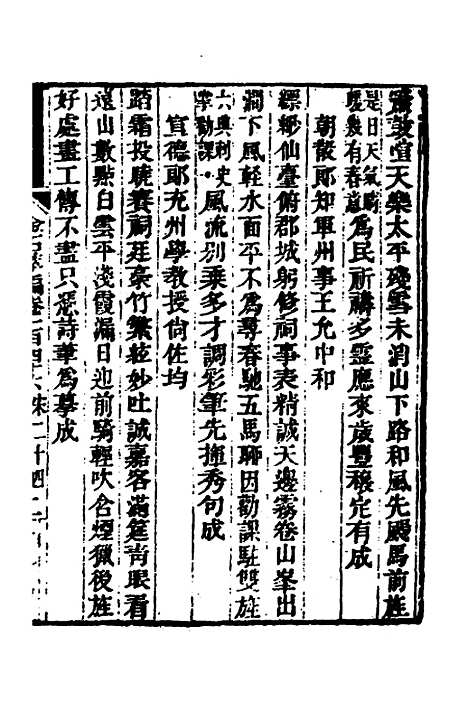 簫鼓喧天樂太平殘雪未消山下路和風先颺馬前旌
是日天氣晴
暖幾有春意爲民祈禱多靈應來歲豐穰定有成
朝散郎知軍州事王允中和
縹緲仙臺俯郡城躬修祠事表精誠天邊霧卷山峯出
澗下風輕水面平不爲尋春馳五馬聊因勸課駐雙旌
六典刺史
掌勸課風流別乘多才調彩筆先摛秀句成
宣德郎充州學教授尙佐均
踏霜投曉賽祠廷豪竹繁絃妙吐誠嘉客滿筵靑眼看
遠山數點白雲平淺霞漏日迎前騎輕吹含煙獵後旌
好處畫工傳不盡只憑詩筆爲摹成
金石萃編卷一百四十六宋二十四